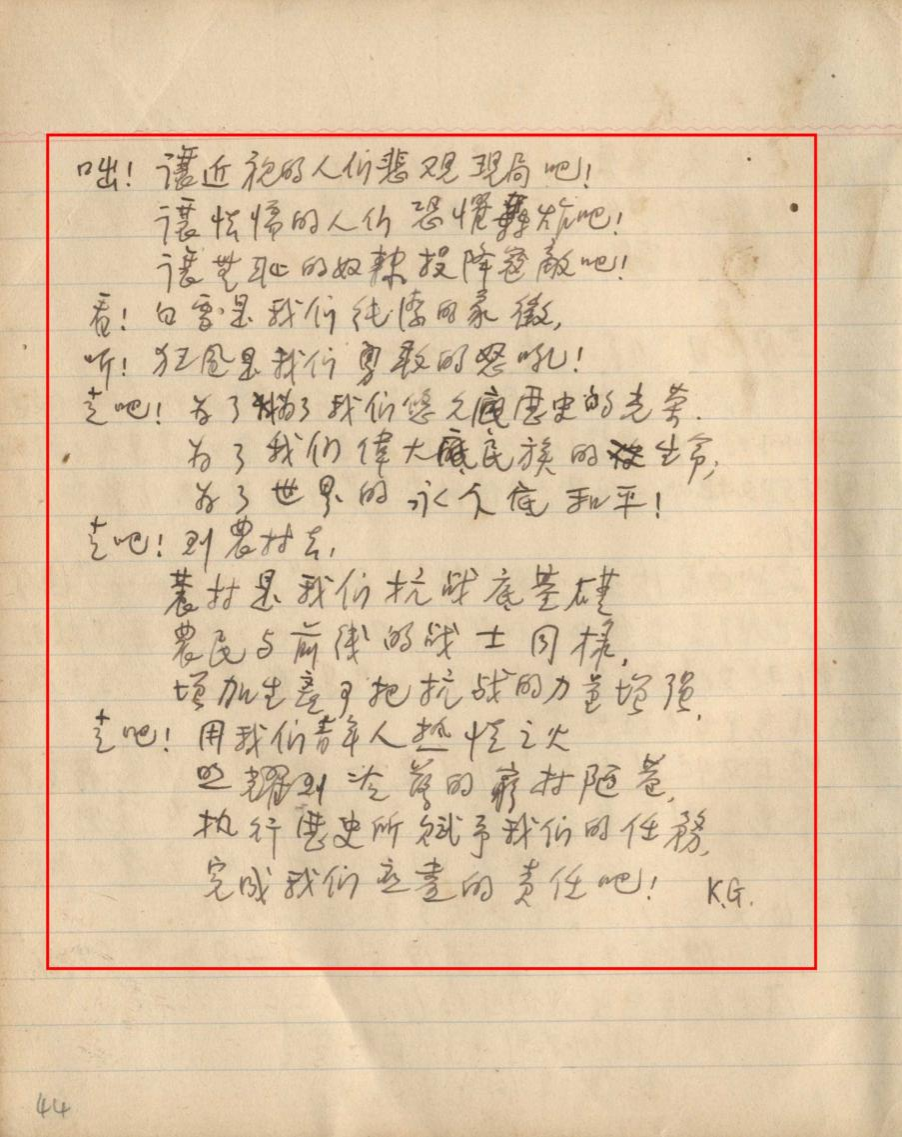 咄！讓近視的人们悲观現局吧！
讓怯懦的人们恐懼轟炸吧！
讓無耻的奴隸投降寇敵吧！
看！白雪是我们纯潔的象徵，
听！狂風是我们勇敢的怒吼！
走吧！为了我们悠久底歷史的光荣.
为了我们偉大底民族的生命，
为了世界的永久底和平！
走吧！到農村去，
農村是我们抗战底基礎
農民与前线的战士同樣，
增加生產可把抗战的力量增强，
走吧！用我们青年人热情之火
照耀到冷落的窮村陋巷，
执行歷史所赋予我们的任務，
完成我们应盡的责任吧！ K.G.
44